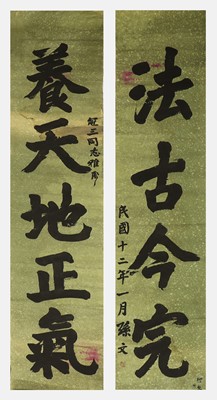 法古今完
民國十二年一月孫文
三同志雅屬
養天地正氣